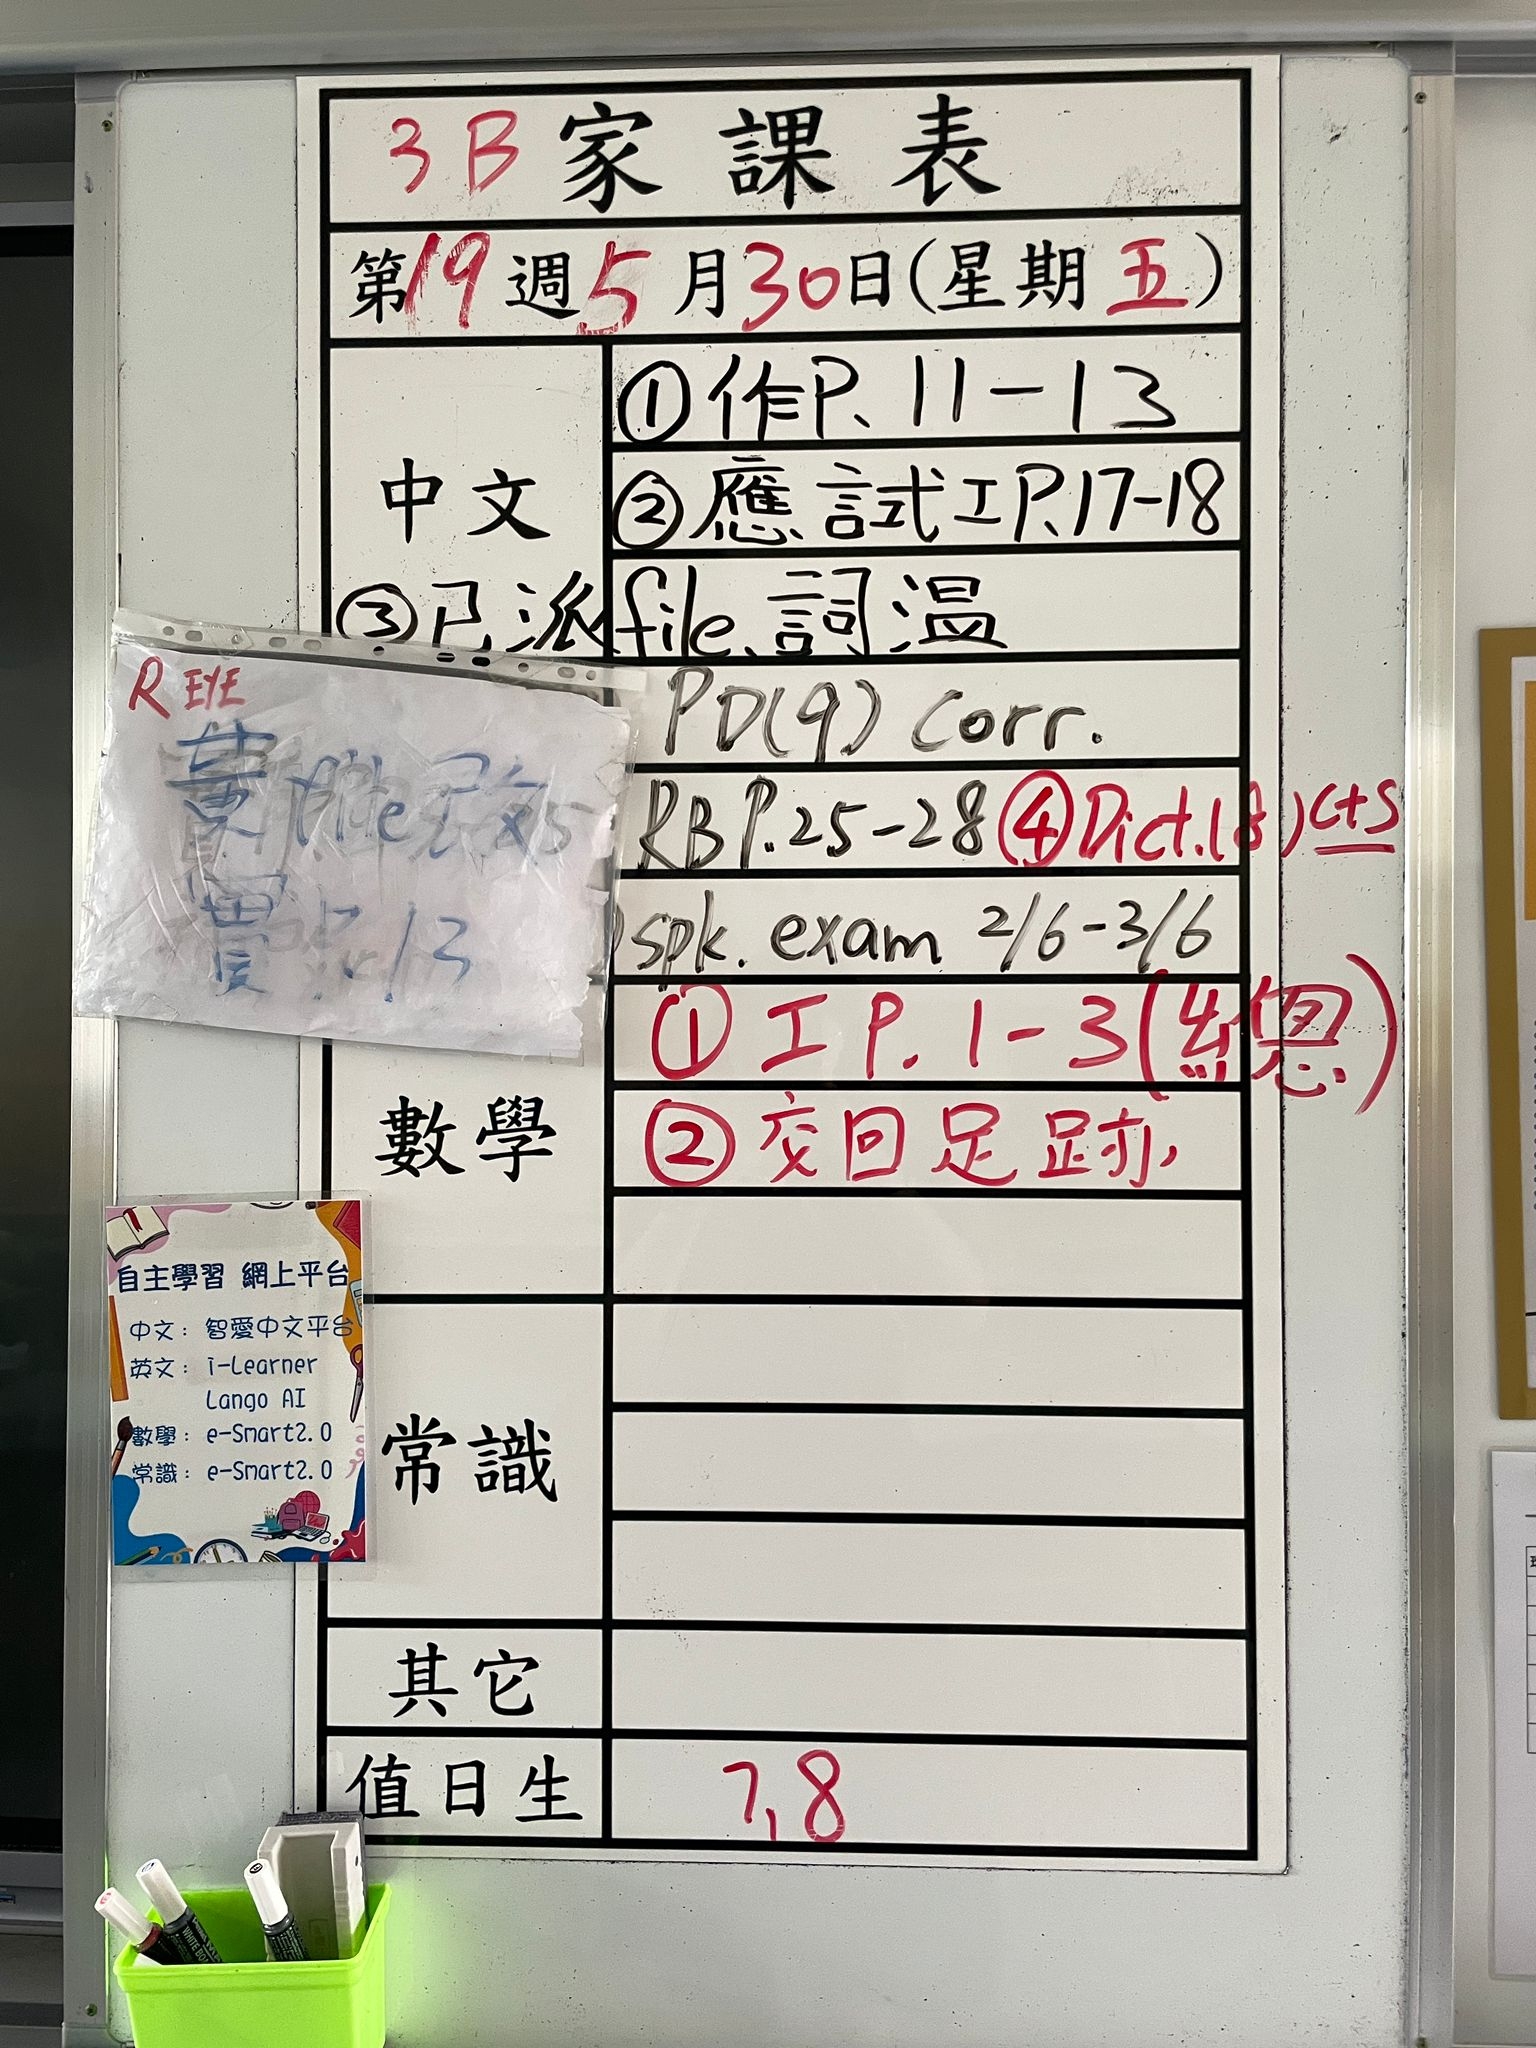 3B 家課表
第19週5月30日(星期五)
中文
①作P.11-13
②應試工P.17-18
③已派file.詞溫
R EYE
P.13
PD(9) Corr.
RB P.25-28 ④Dict.(8) C+S
spk. exam 2/6-3/6
數學
①工P.1-3(總)
②交回足跡
自主學習 網上平台
中文：智愛中文平台
英文：i-Learner
Lango AI
數學：e-Smart2.0
常識：e-Smart2.0
常識
其它
值日生
7,8